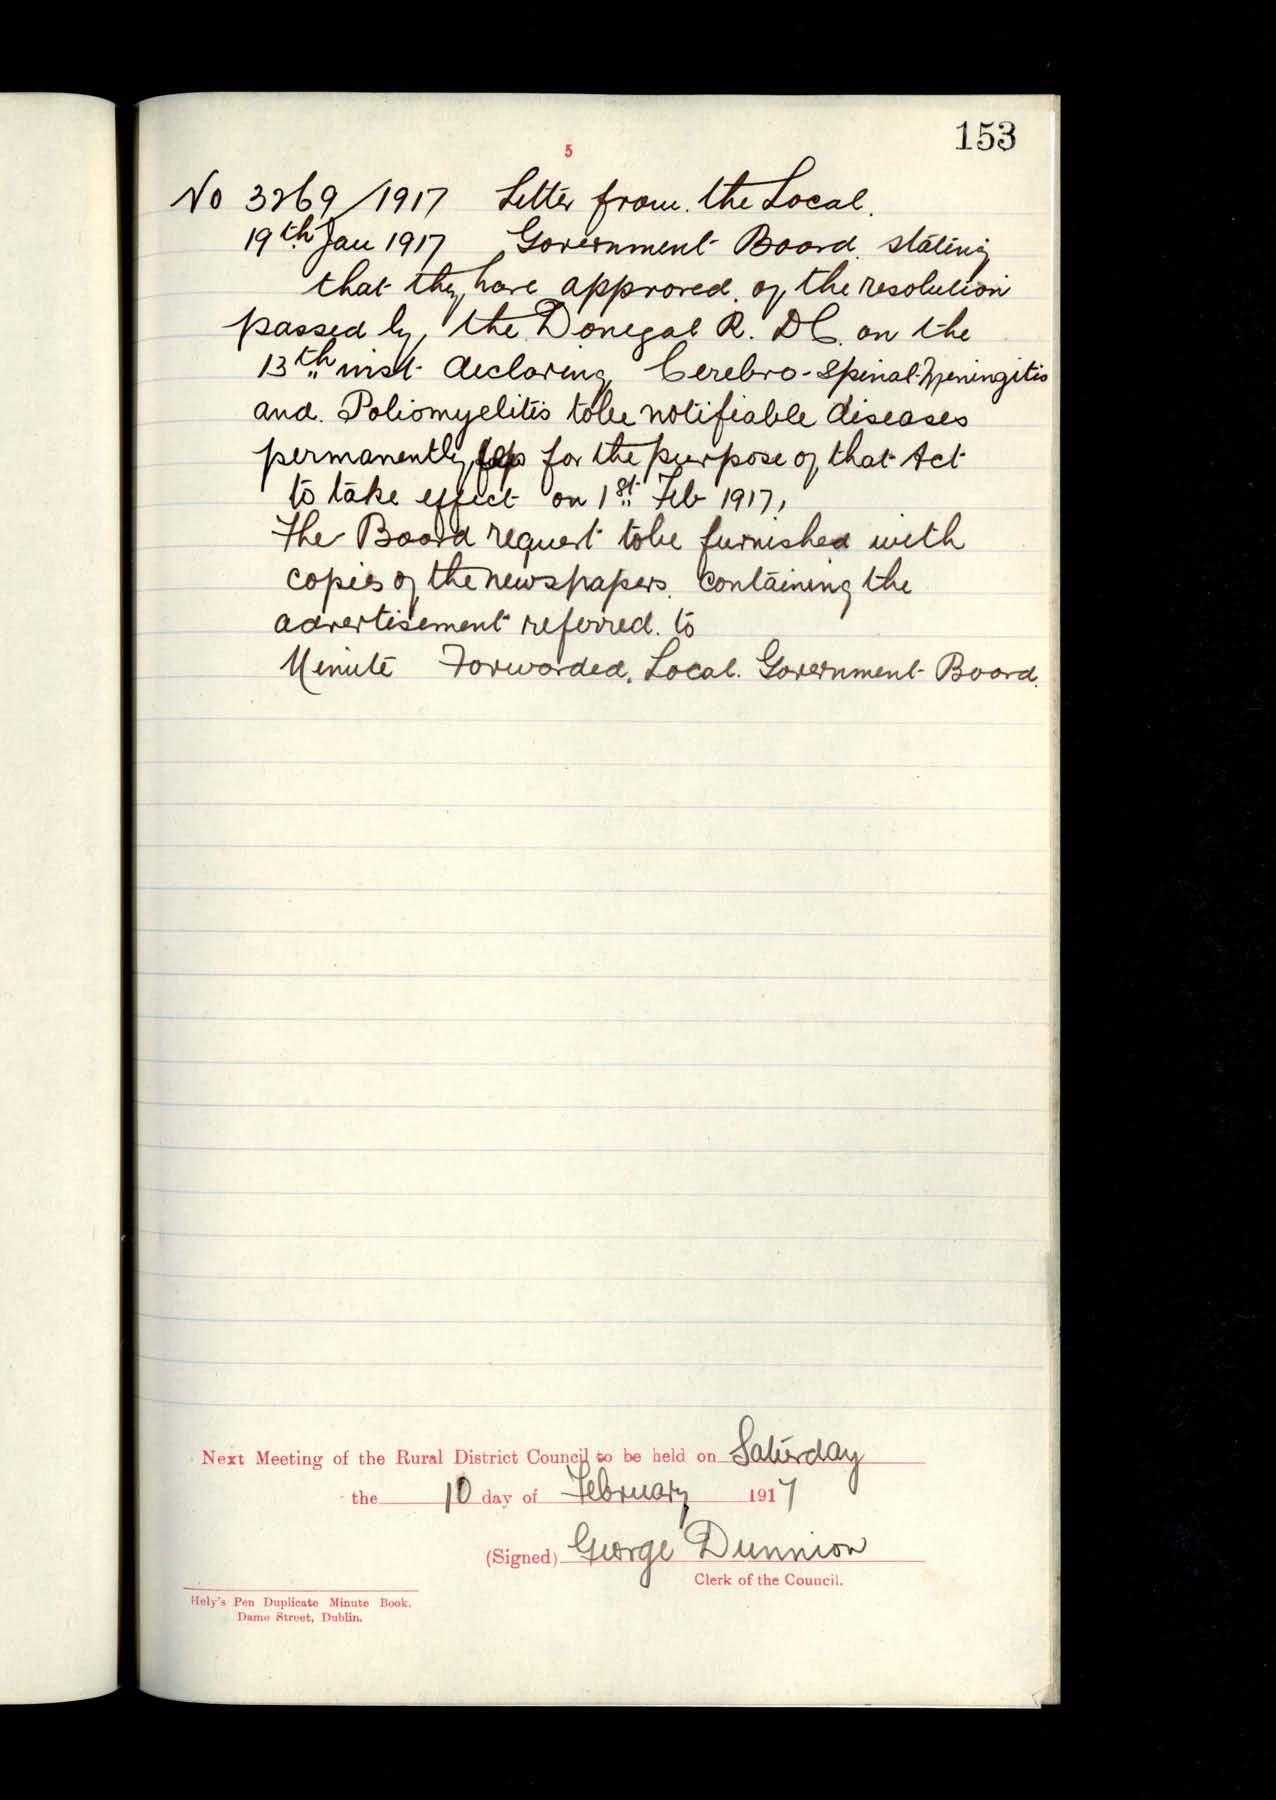 153
5
No 3269/1917 Letter from the Local.
19th Jan 1917 Government Board stating
that they have approved of the resolution
passed by the Donegal R. DC. on the
13th inst declaring Cerebro-Spinal-Meningitis
and Poliomyelitis to be notifiable diseases
permanently for the purpose of that Act
to take effect on 1st Feb 1917,
The Board request to be furnished with
copies of the newspapers containing the
advertisement referred to
Minute Forwarded, Local Government Board.
Next Meeting of the Rural District Council to be held on Saturday
the 10 day of February 1917
(Signed) George Dunnion
Clerk of the Council.
Hely's Pen Duplicate Minute Book.
Dame Street, Dublin.